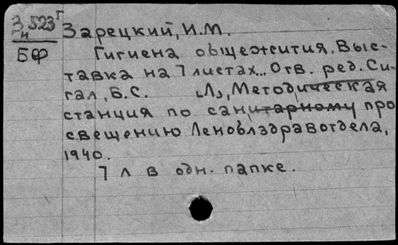 З 523 Г
ги
БФ
Зарецкий, И.М.
Гигиена общежития. Выс-
тавка на 7 листах.. Отв. ред. Си-
гал, Б.С. Л, Методическая
станция по санитарному про
свещению Леноблздравотдела,
1940.
7 л в одн. папке.